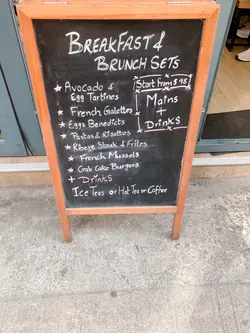 BREAKFAST &
BRUNCH SETS
★ Avocado &
Egg Tartines
★ French Galettes
★ Eggs Benedicts
★ Pastas & Risottos
★ Ribeye Steak & Frites
★ French Mussels
★ Crab Cake Burgers
+ DRINKS
Start from $98
Mains
+
DRINKS
ICE TEAS OR HOT TEA OR COFFEE